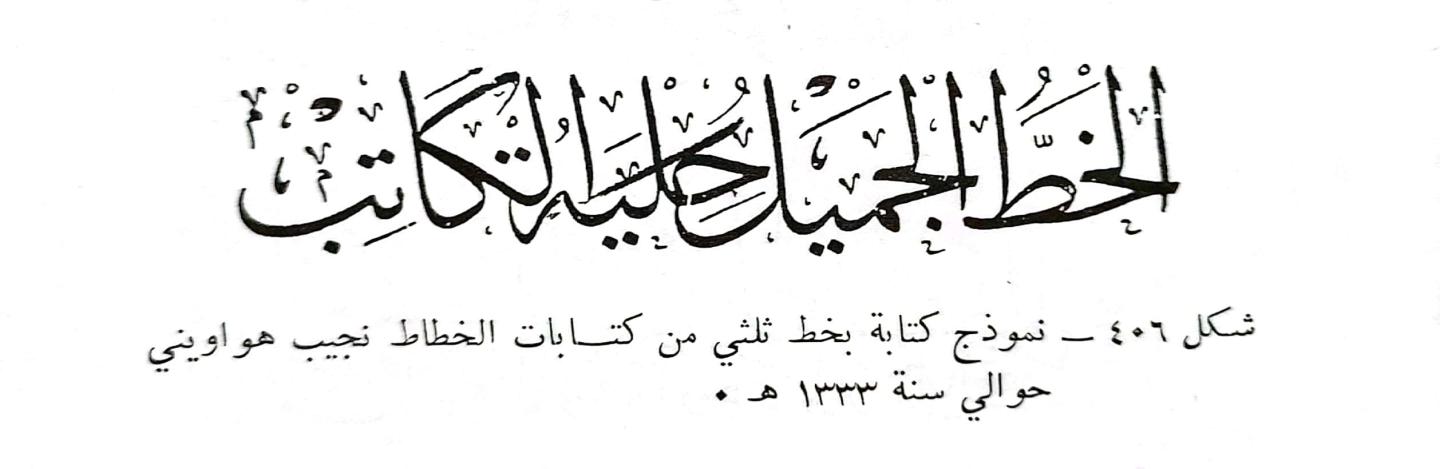 الخطُّ الجميل حلية الكاتب
شكل ٤٠٦ ــ نموذج كتابة بخط ثلثي من كتـــابات الخطاط نجيب هواويني
حوالي سنة ١٣٣٣ هـ ٠